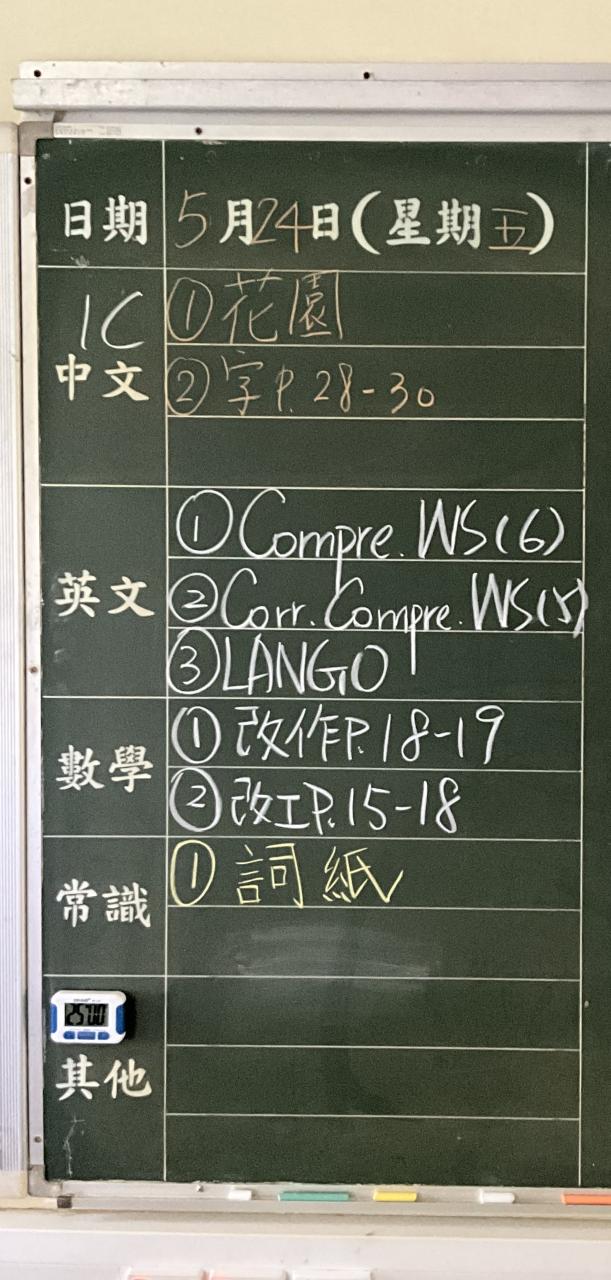 日期 5月24日(星期五)
1C
中文
①花園
②字P.28-30
英文
①Compre. WS(6)
②Corr. Compre. WS(5)
③LANGO
數學
①改作P.18-19
②改工P.15-18
常識
①詞紙
其他